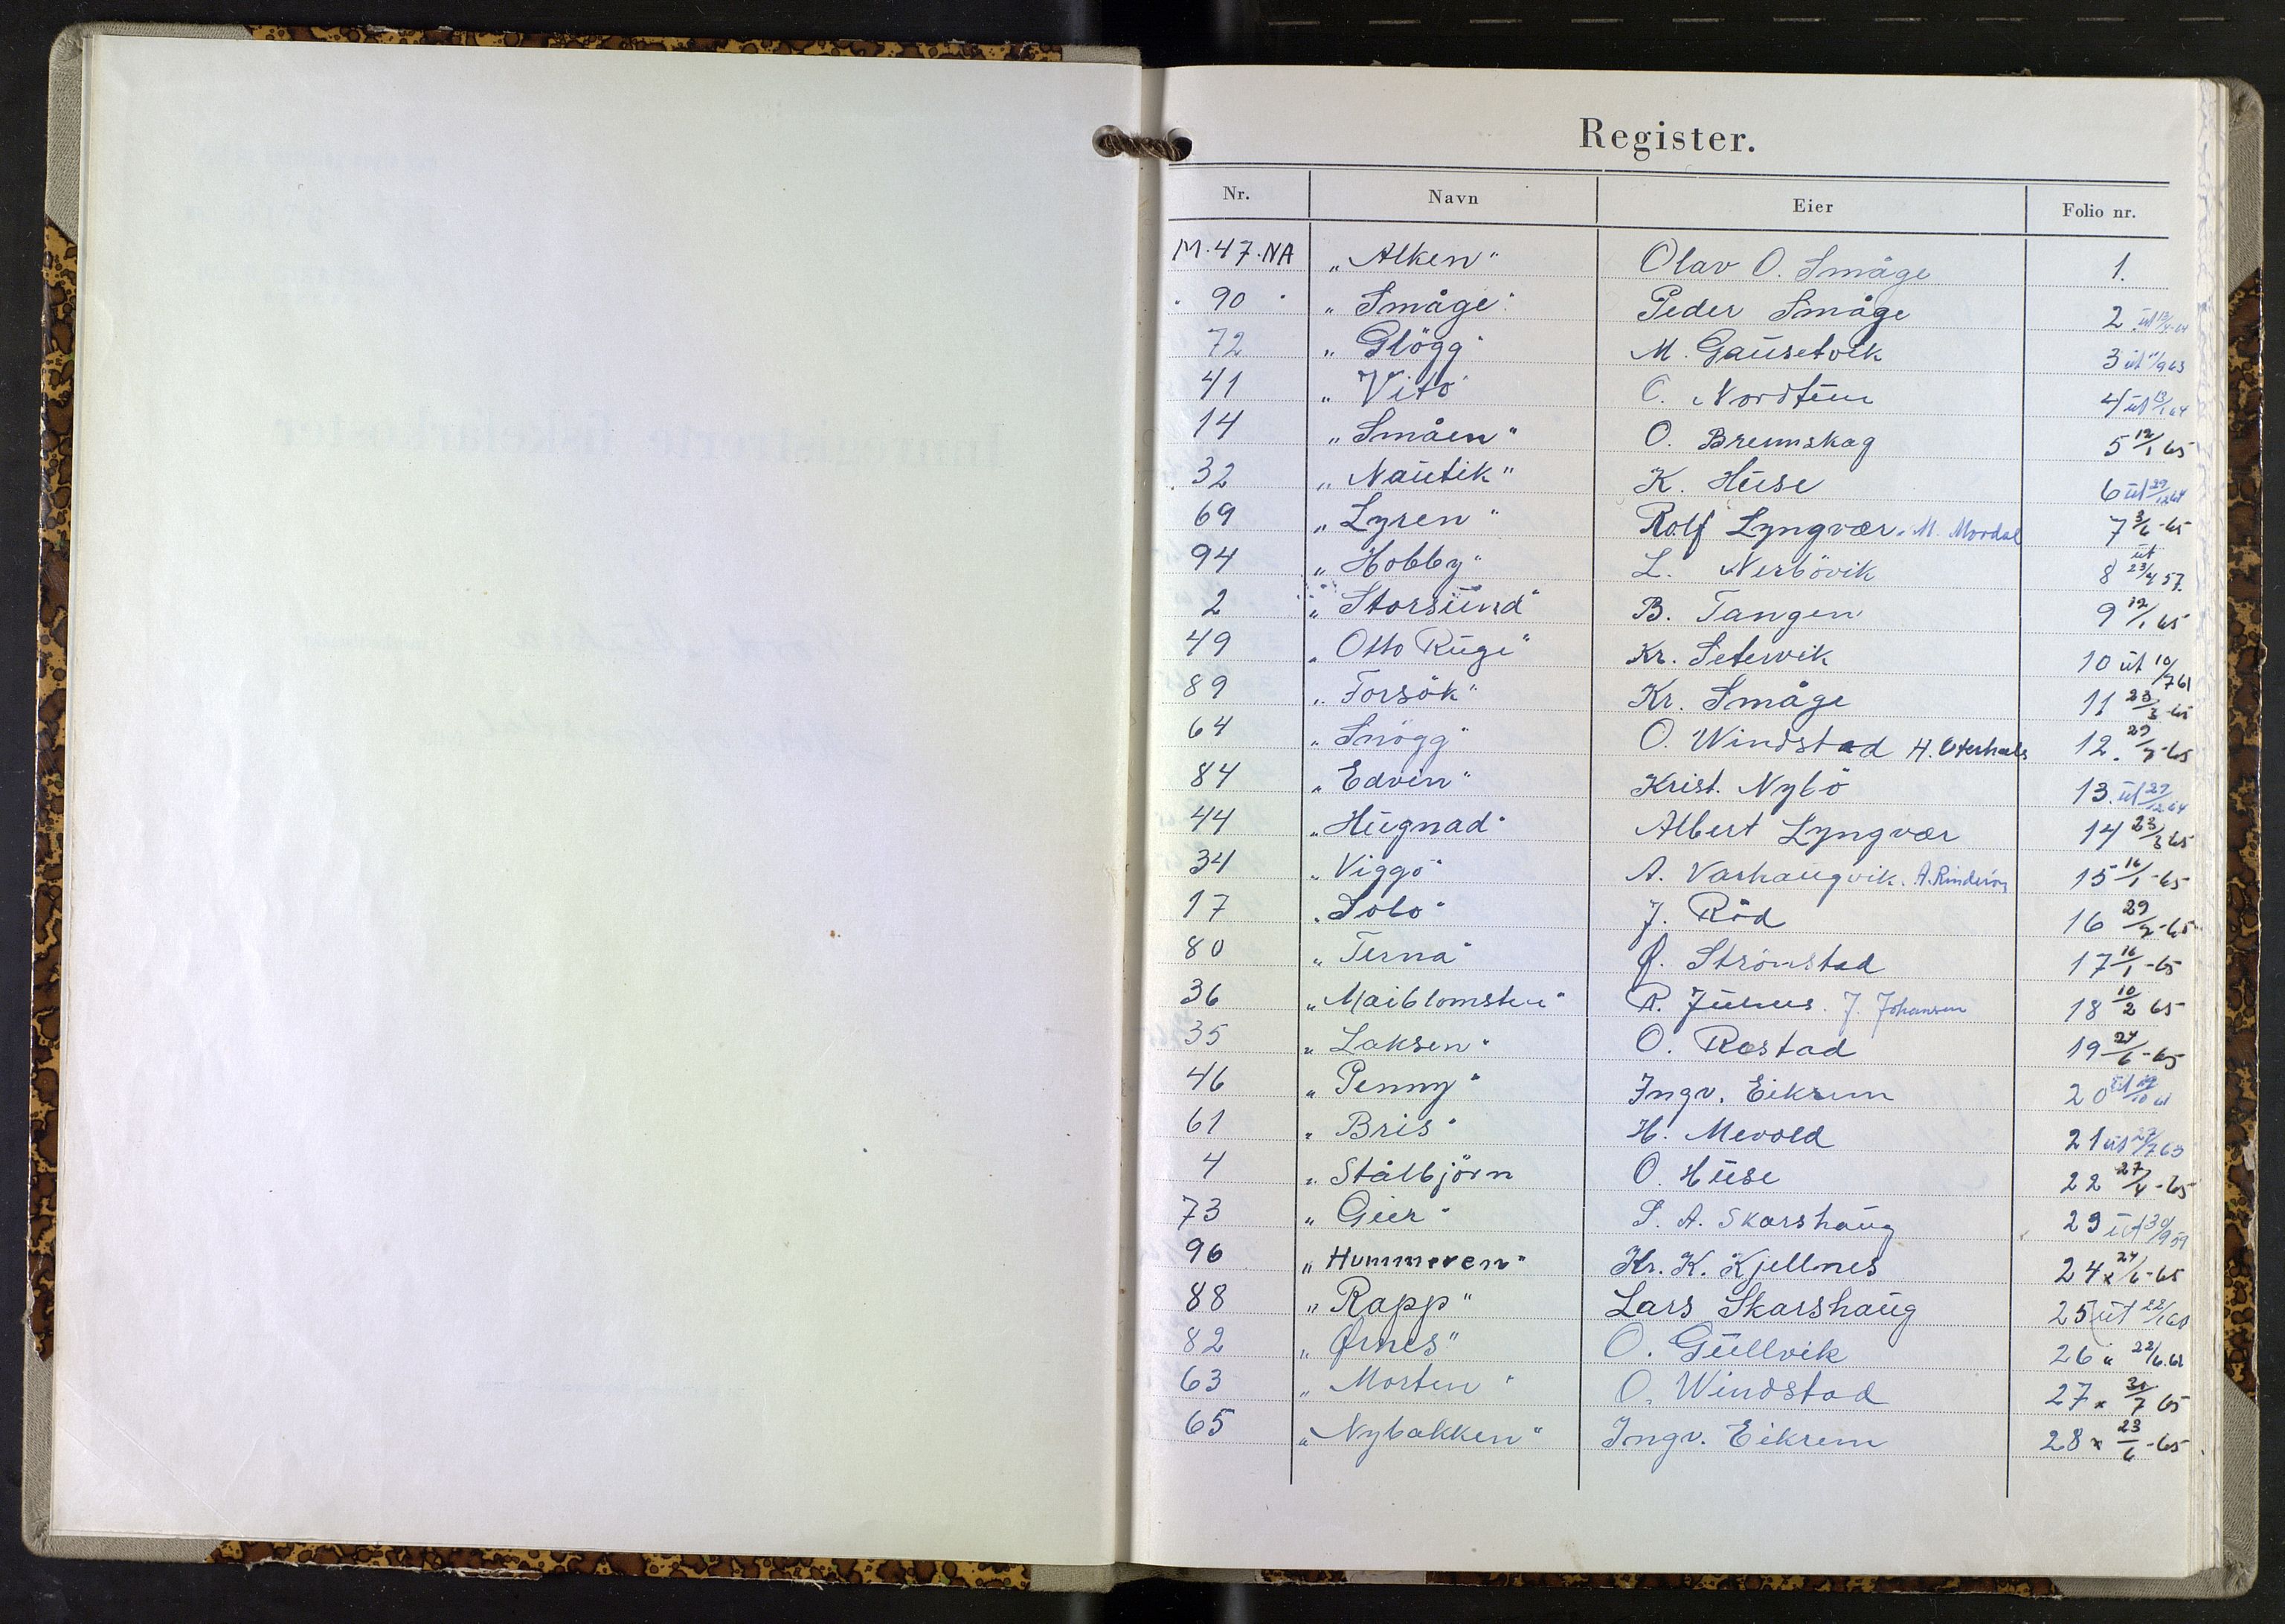 Register.
Nr. Navn Eier Folio nr.
M.47.NA „Alken" Olav O. Småge 1.
" 90 " „Småge" Peder Småge 2 út 13/4-64
72 „Glögg" M. Gaúsetvik 3 út 11/9 63
41 „Vito" O. Nordtún 4 út 13/1 64
14 „Småen" O. Bremskag 5 12/1 65
32 „Naútik" K. Húse 6 út 29/12 64
69 „Lyren" Rolf Lyngvær. M. Mordal 7 3/6-65
94 „Hobby" L. Nerbövik 8 út 23/4 57.
2 „Storsúnd" B. Tangen 9 12/1 65
49 „Otto Rúge" Kr. Setervik 10 út 10/7 61
89 „Forsök" Kr. Småge 11 23/3-65
64 „Snögg" O. Windstad H. Oterhals 12. 29/7-65
84 „Edvin" Krist. Nybö 13. út 29/12 64
44 „Húgnad" Albert Lyngvær 14 23/3 65
34 „Viggo" A. Varhaúgvik. A. Rinderöy 15 16/1-65
17 „Solo" J. Röd 16 29/7-65
80 „Terna" Ø. Strömstad 17 16/1-65
36 „Maiblomsten" R. Júlnes. J. Johansen 18 10/2 65
35 „Laksen" O. Rostad 19 24/6-65
46 „Penny" Ingv. Eikrem 20 út
61 „Bris" H. Mevold 21 út 27/7 63
4 „Stålbjörn O. Húse 22 27/4-65
73 „Geir" S. A. Skarshaúg 23 út 30/9 59
96 „Hummeren" Kr. K. Kjellnes 24 x 24/6-65
88 „Rapp" Lars Skarshaúg 25 út 22/1 60
82 „Ørnes" O. Gúllvik 26 " 22/6.62
63 „Morten" O. Windstad 27 x 31/7 65
65 „Nybakken" Ingv. Eikrem 28 x 23/6-65